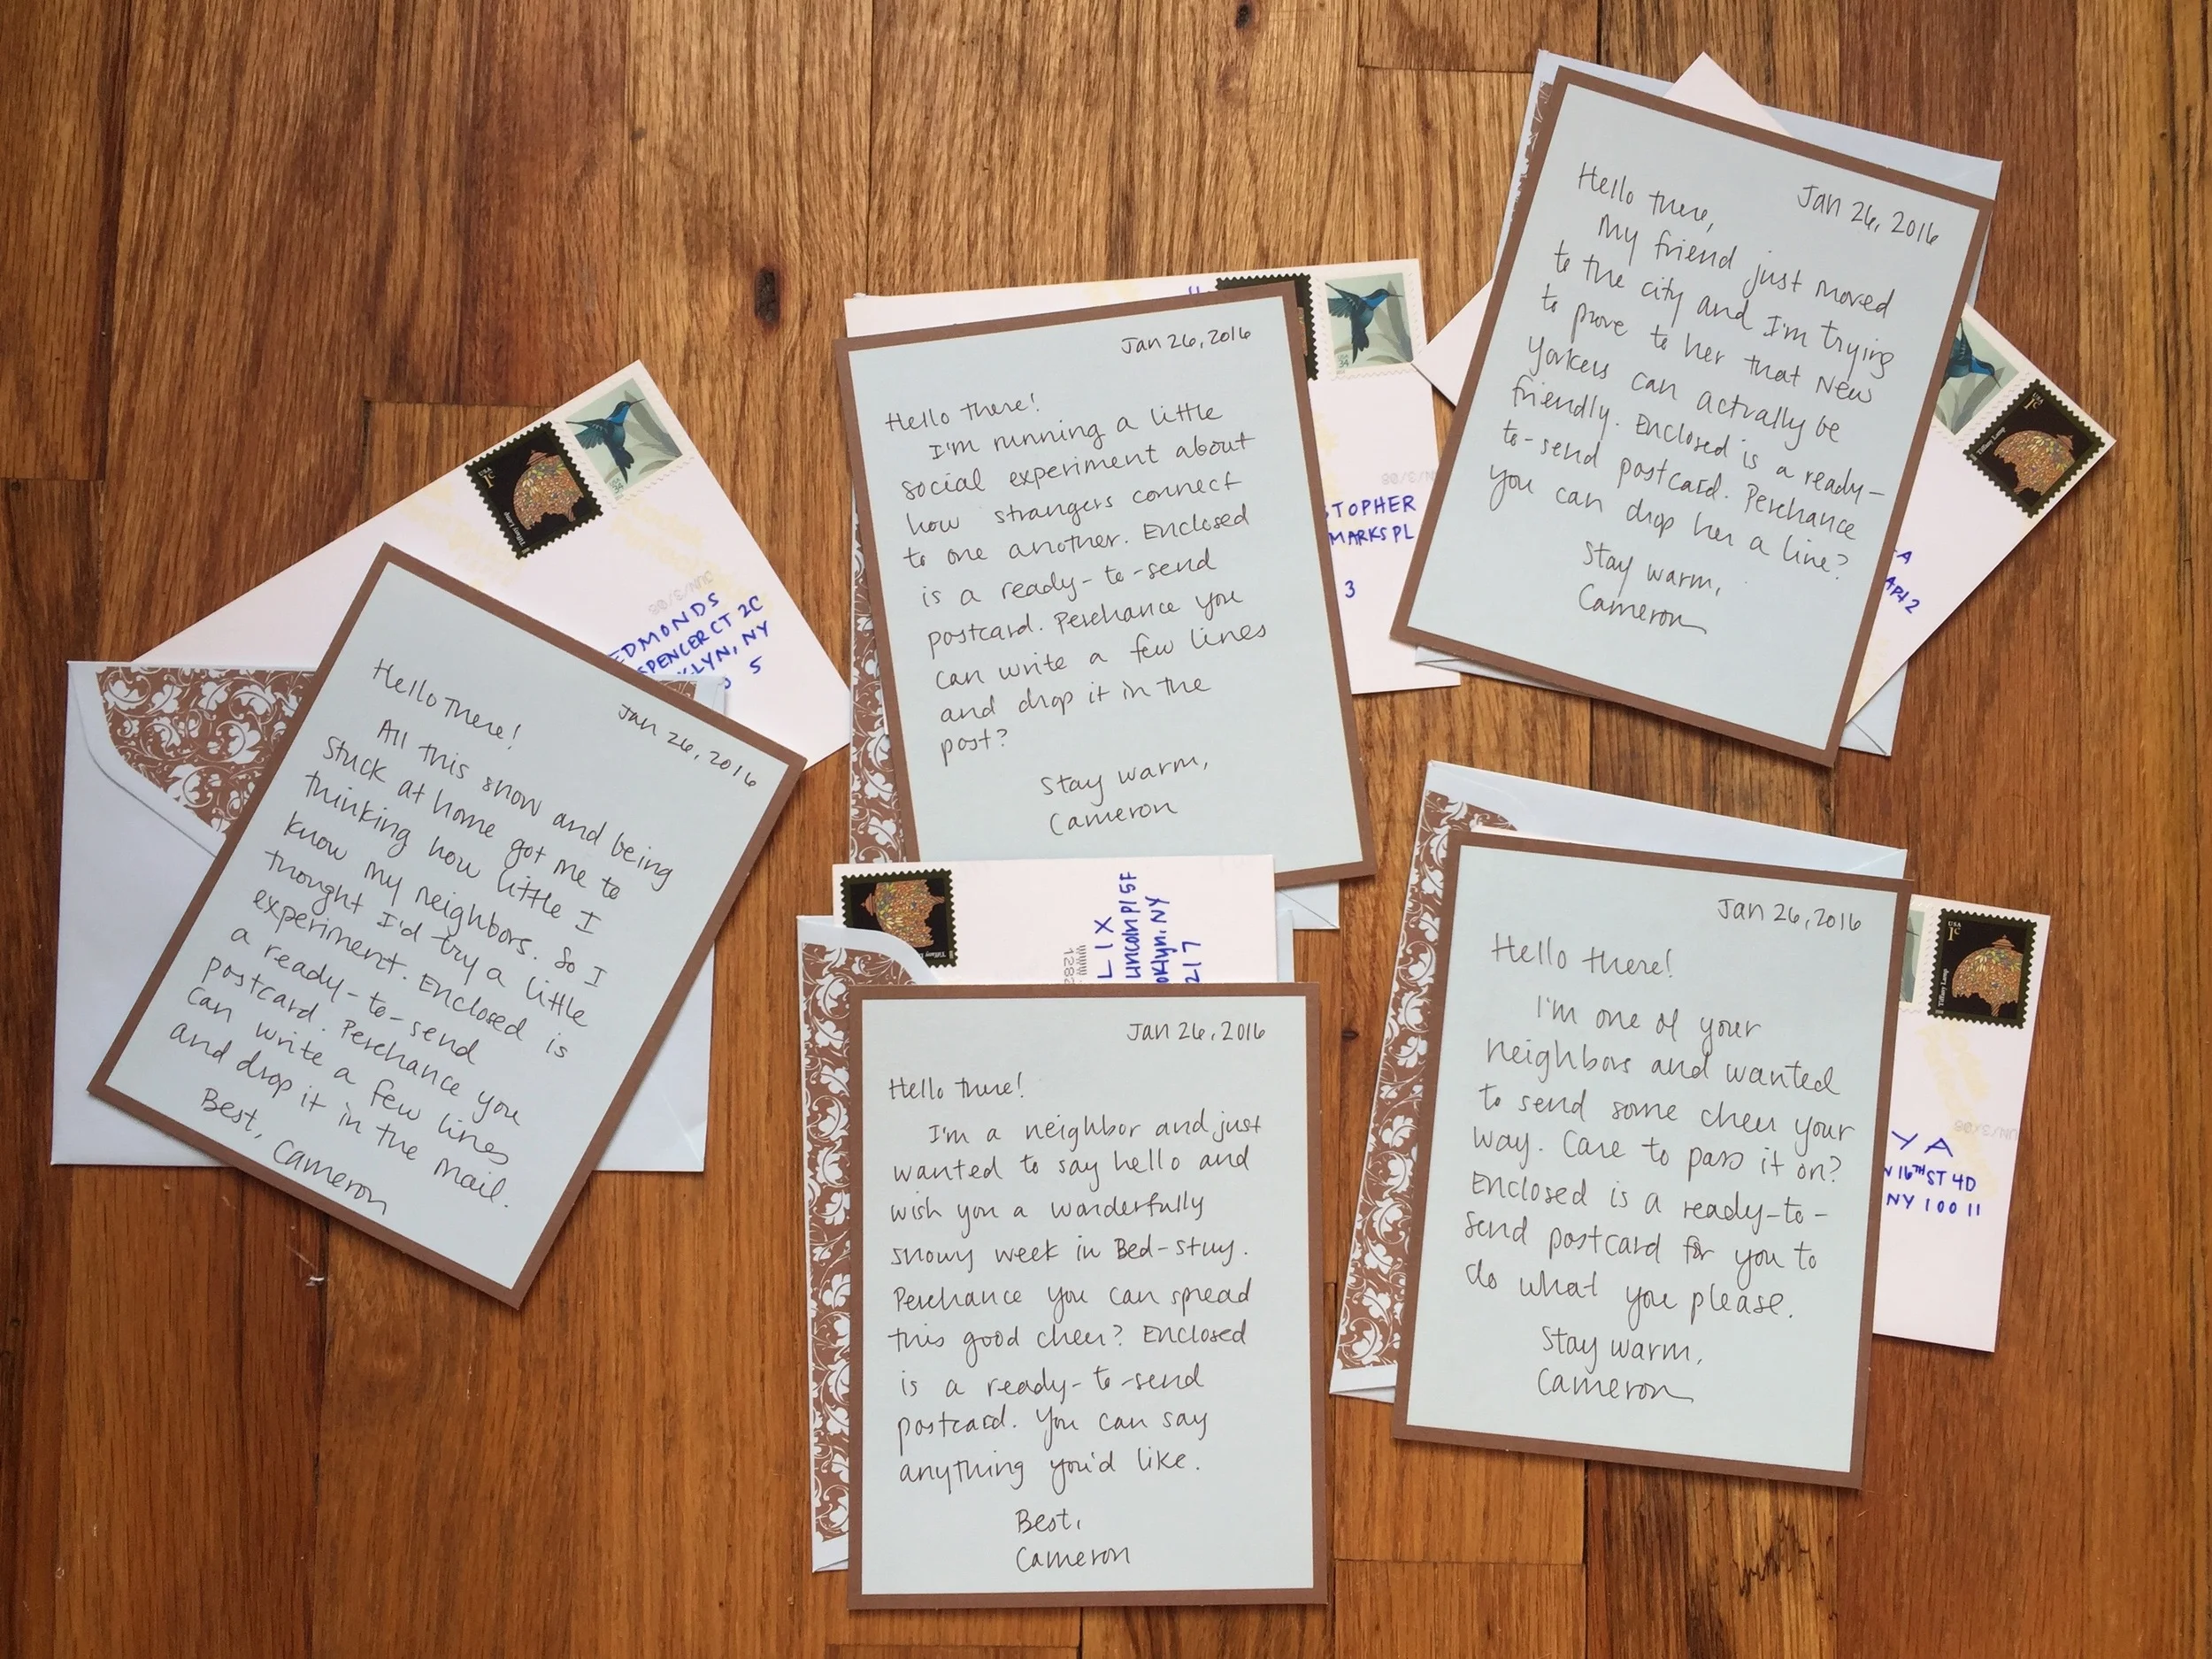 USA
1¢
Tiffany Lamp
USA 34
JUN/3/08
EDMONDS
SPENCER CT 2C
KLYN, NY
5
Hello there!
Jan 26, 2016
All this snow and being
stuck at home got me to
thinking how little I
know my neighbors. So I
thought I'd try a little
experiment. Enclosed is
a ready-to-send
postcard. Perchance you
can write a few lines
and drop it in the mail.
Best, Cameron
USA 34
STOPHER
MARKS PL
3
Jan 26, 2016
Hello there!
I'm running a little
social experiment about
how strangers connect
to one another. Enclosed
is a ready-to-send
postcard. Perchance you
can write a few lines
and drop it in the
post?
Stay warm,
Cameron
1¢
Tiffany Lamp
A
APt 2
Jan 26, 2016
Hello there,
My friend just moved
to the city and I'm trying
to prove to her that New
Yorkers can actually be
friendly. Enclosed is a ready-
to-send postcard. Perchance
you can drop her a line?
Stay warm,
Cameron
Tiffany
LIX
Lincoln Pl 5F
oklyn, NY
217
Jan 26, 2016
Hello there!
I'm a neighbor and just
wanted to say hello and
wish you a wonderfully
snowy week in Bed-Stuy.
Perchance you can spread
this good cheer? Enclosed
is a ready-to-send
postcard. You can say
anything you'd like.
Best,
Cameron
USA
1¢
Tiffany Lamp
JUN/3/08
YA
W 16TH ST 4D
NY 10011
Jan 26, 2016
Hello there!
I'm one of your
neighbors and wanted
to send some cheer your
way. Care to pass it on?
Enclosed is a ready-to-
send postcard for you to
do what you please.
Stay warm,
Cameron